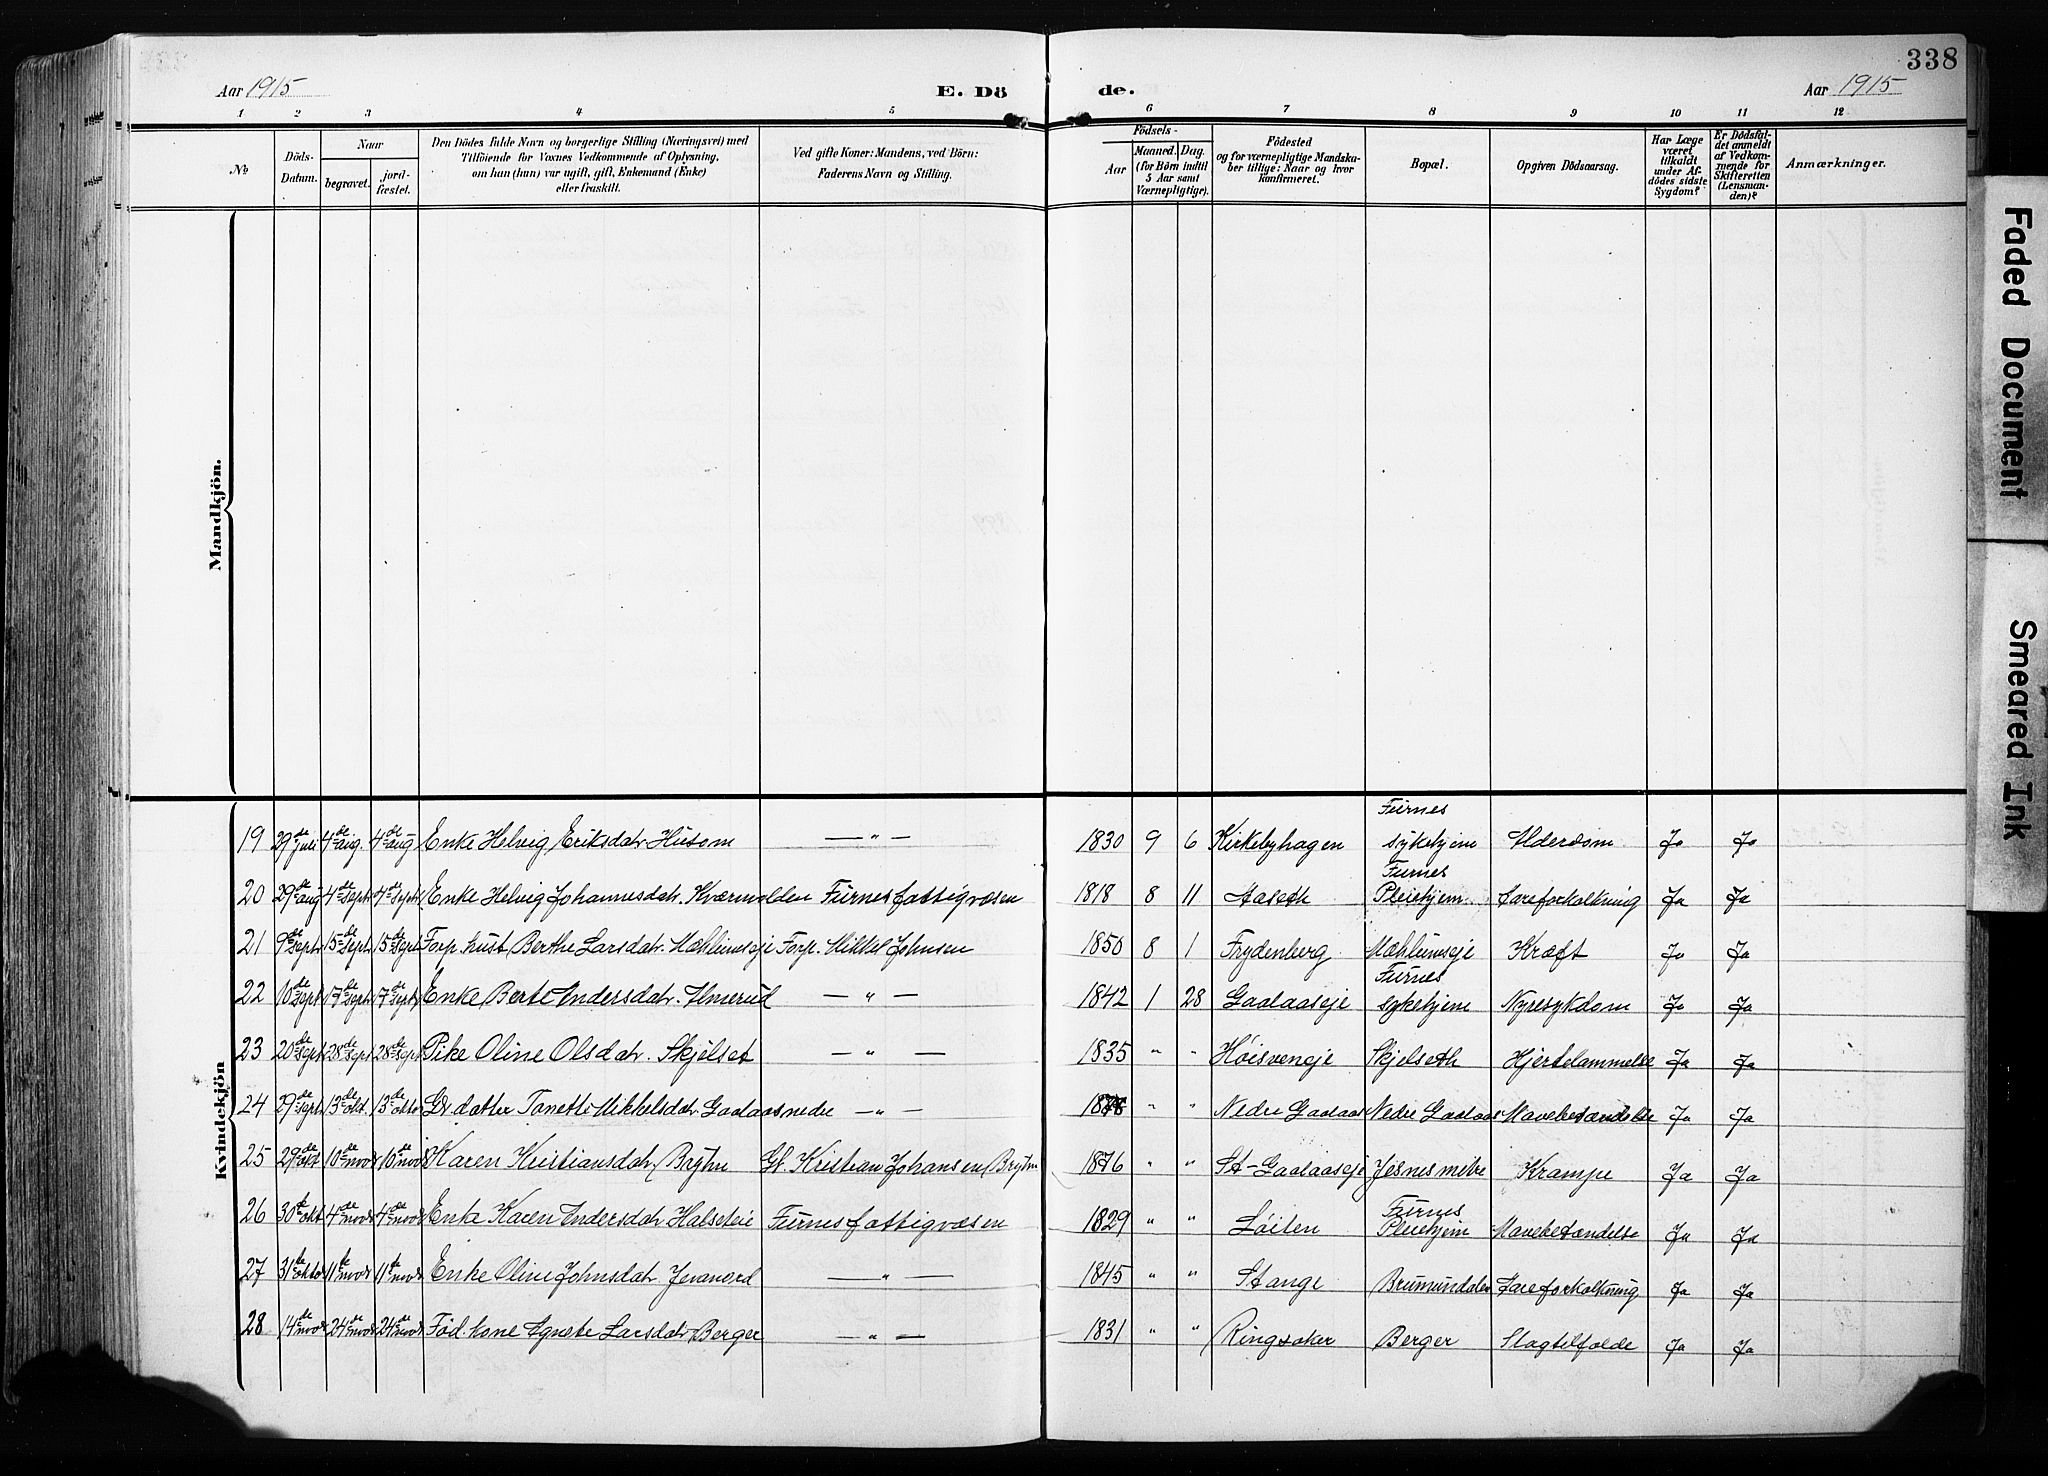 338
Aar 1915
E. Dö de.
Aar 1915
1 2 3 4 5 6 7 8 9 10 11 12
No
Döds-Datum.
Naar
begravet.
jord-fæstet.
Den Dödes fulde Navn og borgerlige Stilling (Næringsvei) med
Tilföiende for Voxnes Vedkommende af Oplysning,
om han (hun) var ugift, gift, Enkemand (Enke)
eller fraskilt.
Ved gifte Koner: Mandens, ved Börn:
Faderens Navn og Stilling.
Födsels-
Aar
Maaned. Dag.
(for Börn indtil
5 Aar samt
Værnepligtige).
Födested
og for værnepligtige Mandska-
ber tillige: Naar og hvor
konfirmeret.
Bopæl.
Opgiven Dödsaarsag.
Har Læge
været
tilkaldt
under Af-
dödes sidste
Sygdom?
Er Dödsfal-
det anmeldt
af Vedkom-
mende for
Skifteretten
(Lensman-
den)?
Anmærkninger.
Mandkjön.
Kvindekjön
19 29de juli 4de aug. 4de aug Enke Helvig Eriksdatr Husom — " — 1830 9 6 Kirkebyhagen Furnes sykehjem Alderdom Ja Ja
20 29de aug 4de sept 4de sept. Enke Helvig Johannesdatr. Kværnvolden Furnes fattigvæsen 1818 8 11 Aaseth Furnes Pleiehjem. Aareforkalkning Ja Ja
21 9de sept. 15de sept. 15de sept Forp. hust. Berthe Larsdatr. Mæhlumseje Forp. Mikkel Johnsen 1850 8 1 Frydenberg Mæhlumseje Kræft Ja Ja
22 10de sept. 17de sept 17de sept. Enke Berte Andersdatr. Almerud — " — 1842 1 28 Gaalaaseje Furnes sykehjem Nyresykdom Ja Ja
23 20de sept. 28de sept 28de sept Pike Oline Olsdatr. Skjelset — " — 1835 " " Høisveneje Skjelseth Hjertelammelse Ja Ja
24 29de sept. 13de okt. 13de okto Gr. datter Tonette Mikkelsdatr. Gaalaas nedre — " — " " Nedre Gaalaas Nedre Gaalaas Mavebetændelse Ja Ja
25 29de okt 10de novr 10de novr Karen Kristiansdatr Kristian Johansen 1876 " " St-Gaalaaseje Jesnesmibe Krampe Ja Ja
26 30te okt 4de novr 4de novr. Enke Karen Andersdatr Halseteie Furnes fattigvæsen 1829 " " Løiten Furnes Pleiehjem Mavebetændelse Ja Ja
27 31te okto 11te novr 11te novr Enke Oline Johnsdatr. Jevanord — " — 1845 " " Stange Brumundalen Aareforkalkning Ja Ja
28 14de novr 24de novr 24de novr Fød. kone Agnete Larsdatr Berger — " — 1831 " " Ringsaker Berger Slagtilfælde Ja Ja
Faded Document
Smeared Ink